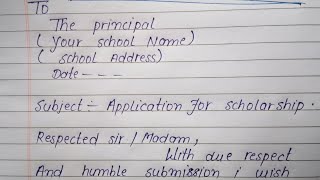 To
The principal
( Your school Name)
( school Address)
Date - - -
Subject ÷ Application For scholarship .
Respected sir / Madam,
With due respect
And humble submission i wish